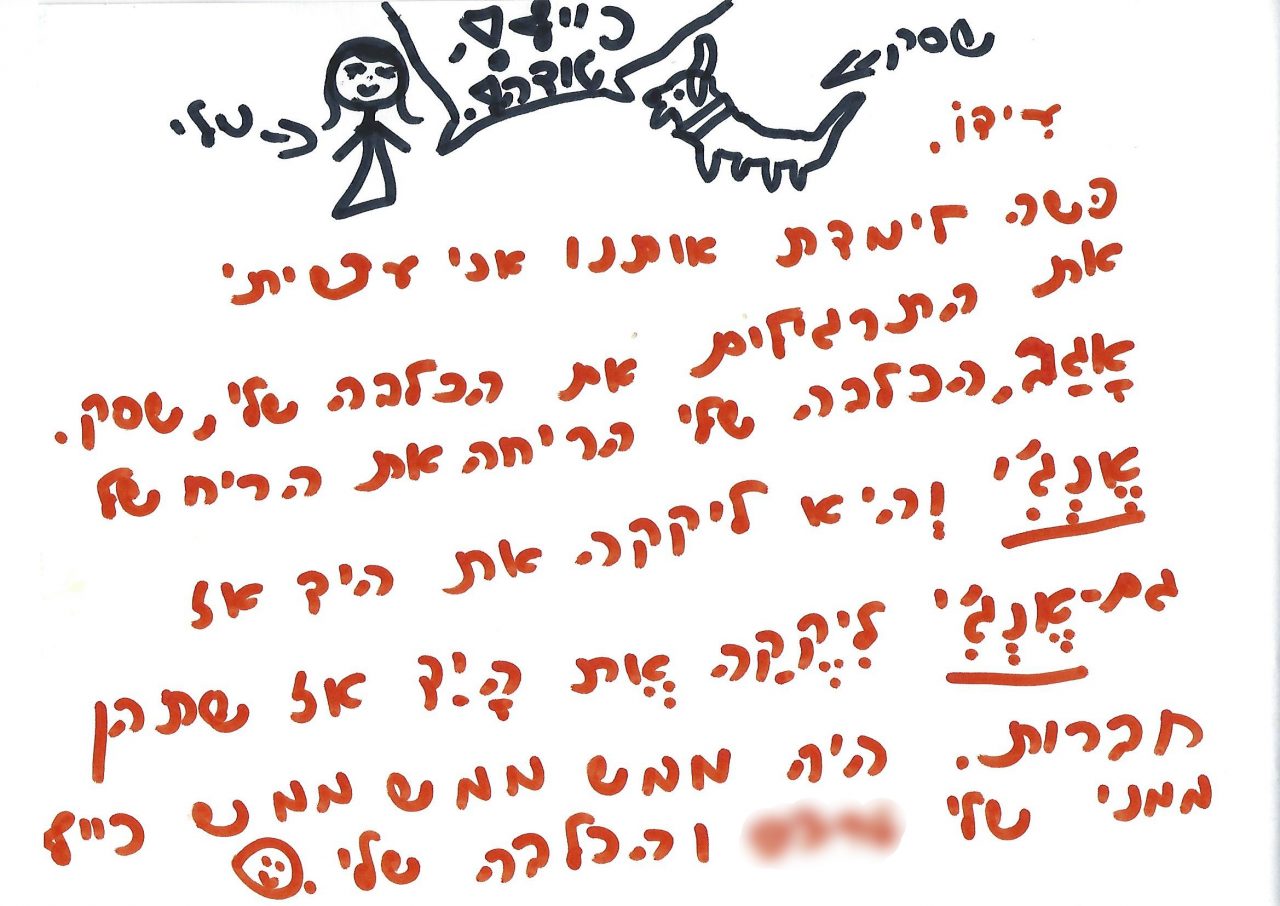 כייף!
תודה!
שלי
שסק
עִידוֹ.
כשה לימדת אותנו אני עשיתי
את התרגילים את הכלבה שלי, שסק.
אָגַב, הכלבה שלי הריחה את הריח של
אֱנְגִ'י וְהיא ליקקה את היד אז
גם-אֱנְגִ'י לִיקֵקַה אֱת הָיַד אז שתהן
חברות. היה ממש ממש ממש כייף
ממני שלי והכלבה שלי.